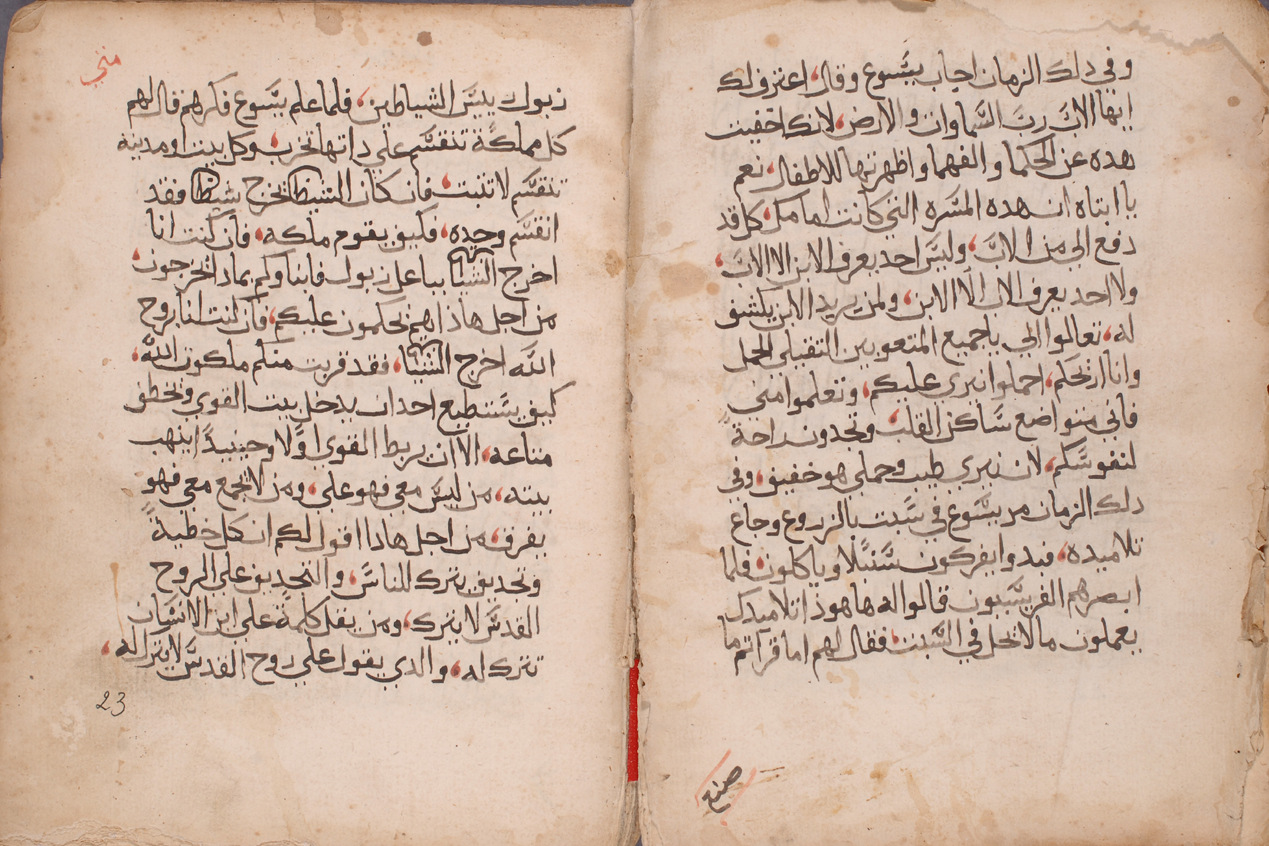 وفي دلك الزمان اجاب يسوع وقال، اعترف لك
ايها الاب رب السماوات والارض، لانك اخفيت
هده عن الحكما والفهما واظهرتها للاطفال، نعم
يا ابتاه ان هده المسره التي كانت امامك، كل قد
دفع الي من الاب، وليس احد يعرف الابن الا الاب،
ولا احد يعرف الاب الا الابن، ولمن يريد الابن يكشف
له، تعالوا الي يا جميع المتعوبين الثقيلي الحمل
وانا اريحكم، احملوا نيري عليكم، وتعلموا مني
فاني متواضع ساكن القلب، وتجدون راحة
لنفوسكم، لان نيري طيب وحملي هو خفيف، وفي
دلك الزمان مر يسوع في سبت بالزروع وجاع
تلاميده، فبدوا يفركون سنبلا وياكلون، فلما
ابصرهم الفريسيون قالوا له ها هوذا تلاميدك
يعملون ما لا يحل في السبت، فقال لهم اما قراتم ما
صنع
متي
زبول رييس الشياطين، فلما علم يسوع فكرهم قال لهم
كل مملكة تنقسم على داتها تخرب، وكل بيت او مدينه
تنقسم لا تثبت، فان كان الشيطا يخرج شيطا فقد
انقسم وحده، فكيف يقوم ملكه، فان كنت انا
اخرج الشيا بباعل زبول فابناوكم بمادا يخرجون،
من اجل هاذا هم يحكمون عليكم، فان كنت انا بروح
الله اخرج الشيا، فقد قربت منكم ملكوت الله،
كيف يستطيع احد ان يدخل بيت القوي ويخطف
متاعه، الا ان يربط القوي اولا وحينيدا ينهب
بيته، من ليس معي فهو علي، ومن لا يجمع معي فهو
يفرق، من اجل هادا اقول لكم ان كل خطية
وتجديف يترك للناس، والتجديف على الروح
القدس لا يترك، ومن يقل كلمة على ابن الانسان
تترك له، والدي يقول على روح القدس لا يترك له،
23